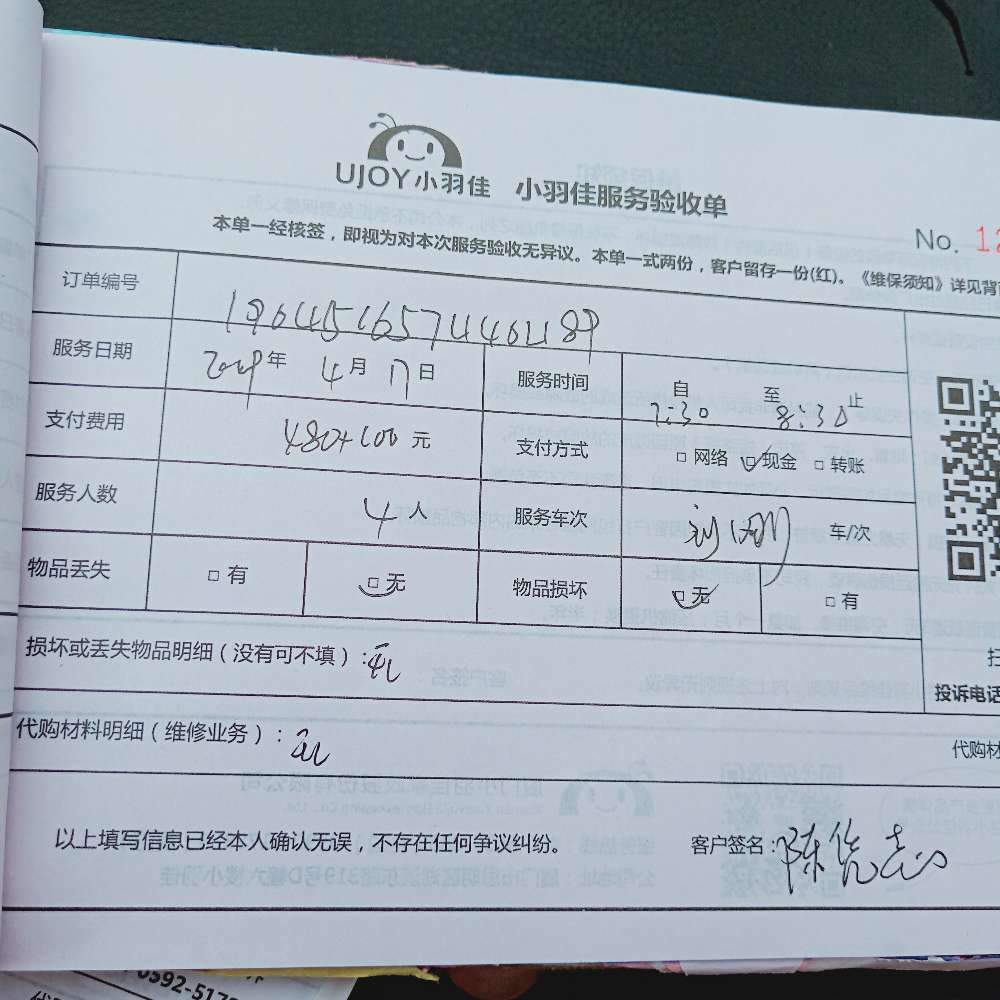 UJOY小羽佳 小羽佳服务验收单
No. 12
本单一经核签，即视为对本次服务验收无异议。本单一式两份，客户留存一份(红)。《维保须知》详见背
订单编号
服务日期 年 4月17日 服务时间 自7:30 至8:30止
支付费用 480+100 元 支付方式 □ 网络 □ 现金 □ 转账
服务人数 4人 服务车次 车/次
物品丢失 □ 有 □ 无 物品损坏 □ 无 □ 有
损坏或丢失物品明细（没有可不填）：无
投诉电话
代购材料明细（维修业务）：无
代购材
以上填写信息已经本人确认无误，不存在任何争议纠纷。 客户签名：
0592-517